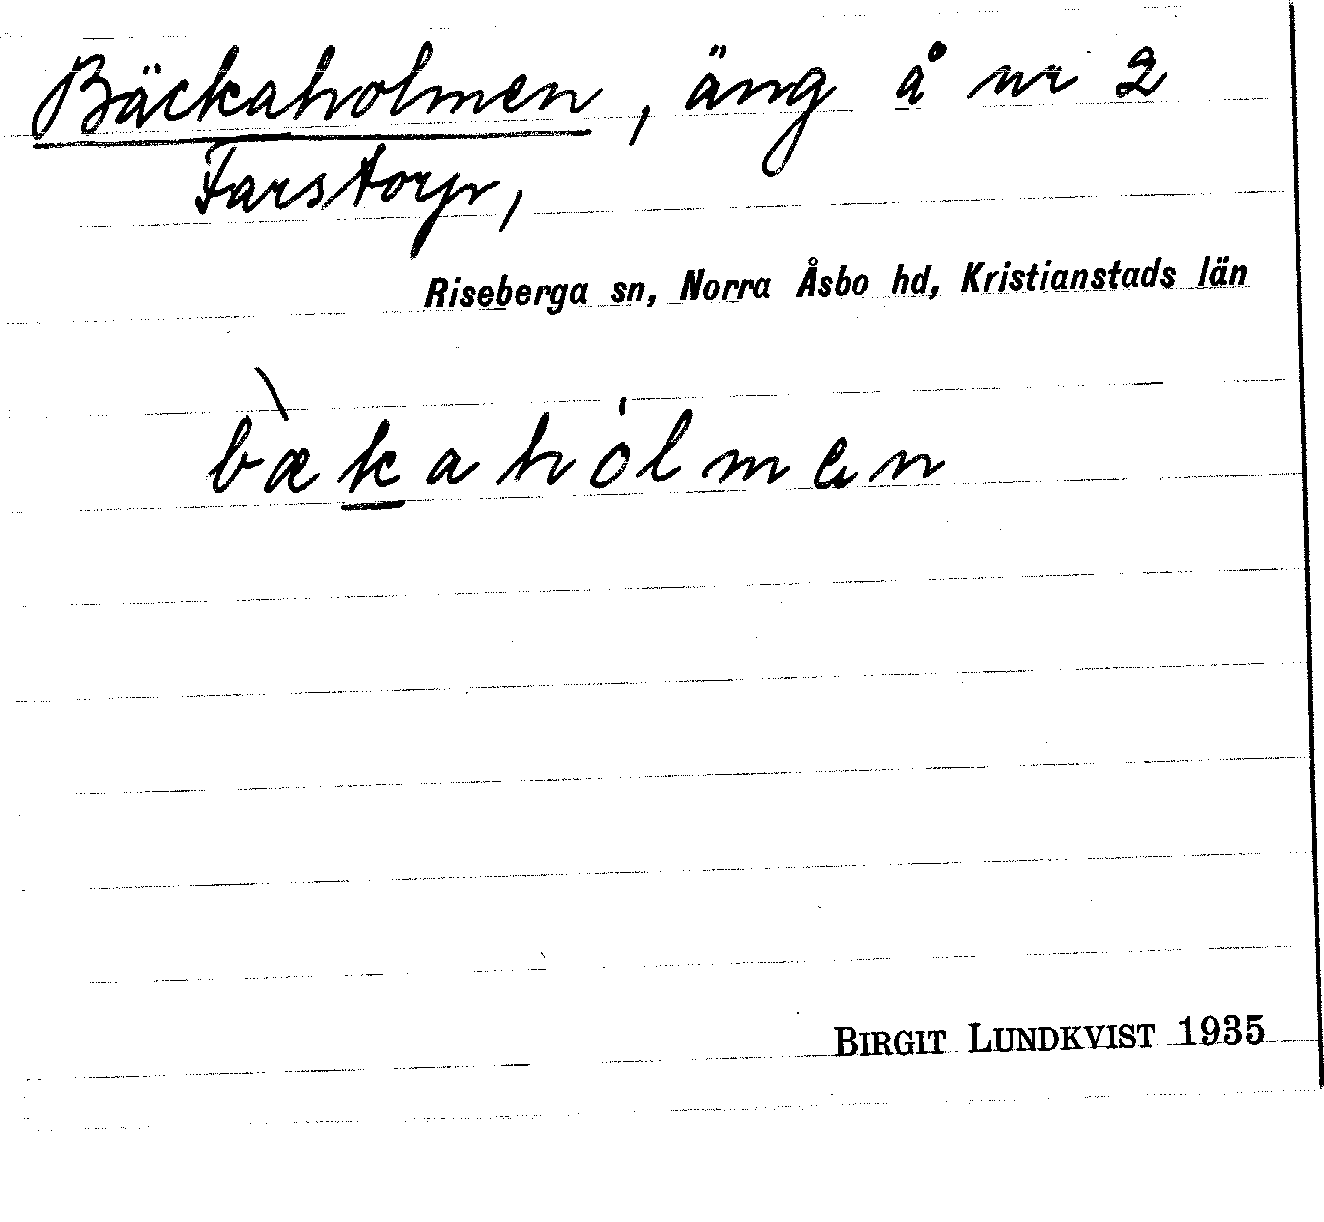 Bäckaholmen, äng å nr 2
Farstorp,
Riseberga sn, Norra Åsbo hd, Kristianstads län
bæ̀kahólmen
BIRGIT LUNDKVIST 1935